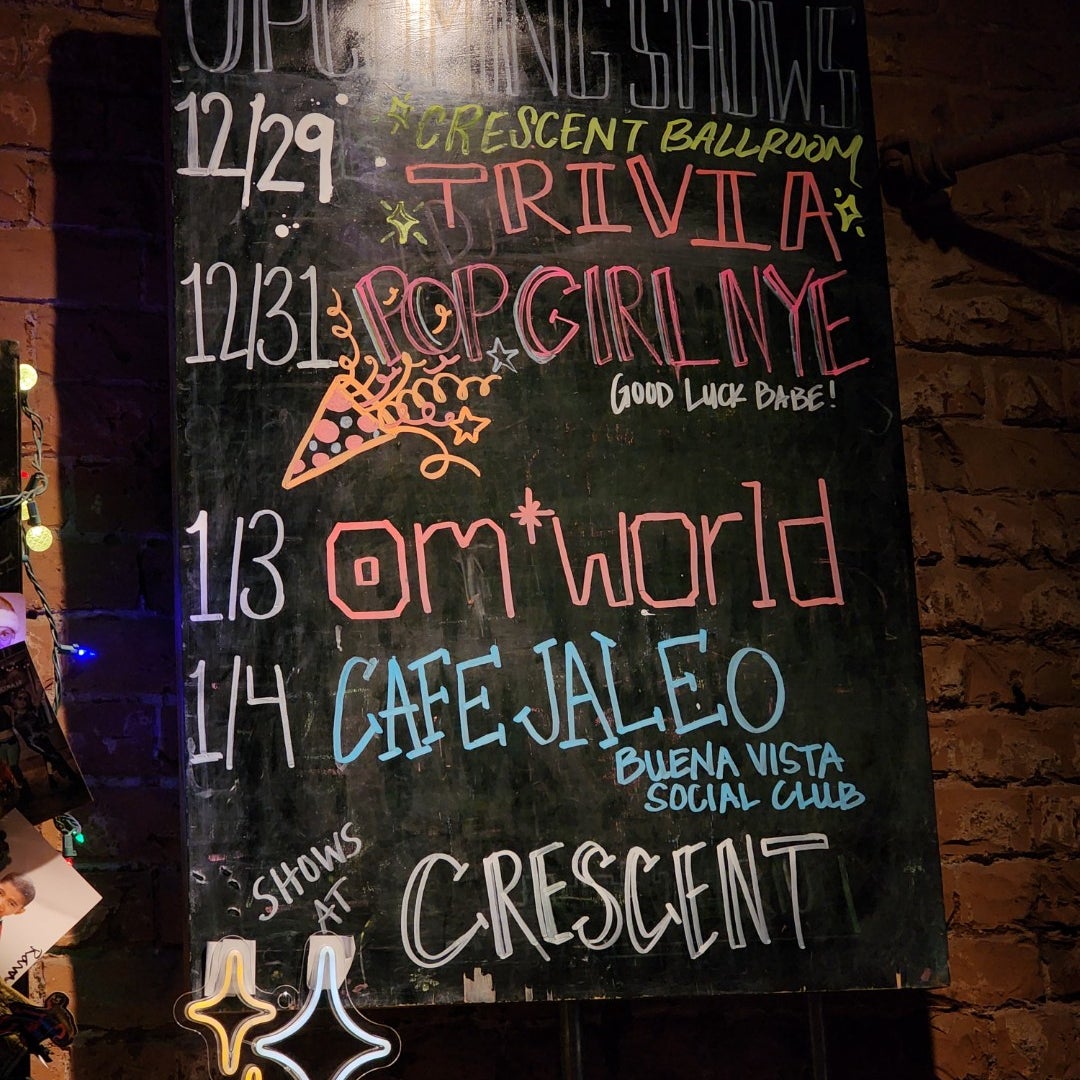 UPCOMING SHOWS
12/29 CRESCENT BALLROOM
TRIVIA
12/31 POP GIRL NYE
GOOD LUCK BABE!
1/3 om*world
1/4 CAFE JALEO
BUENA VISTA
SOCIAL CLUB
SHOWS
AT
CRESCENT